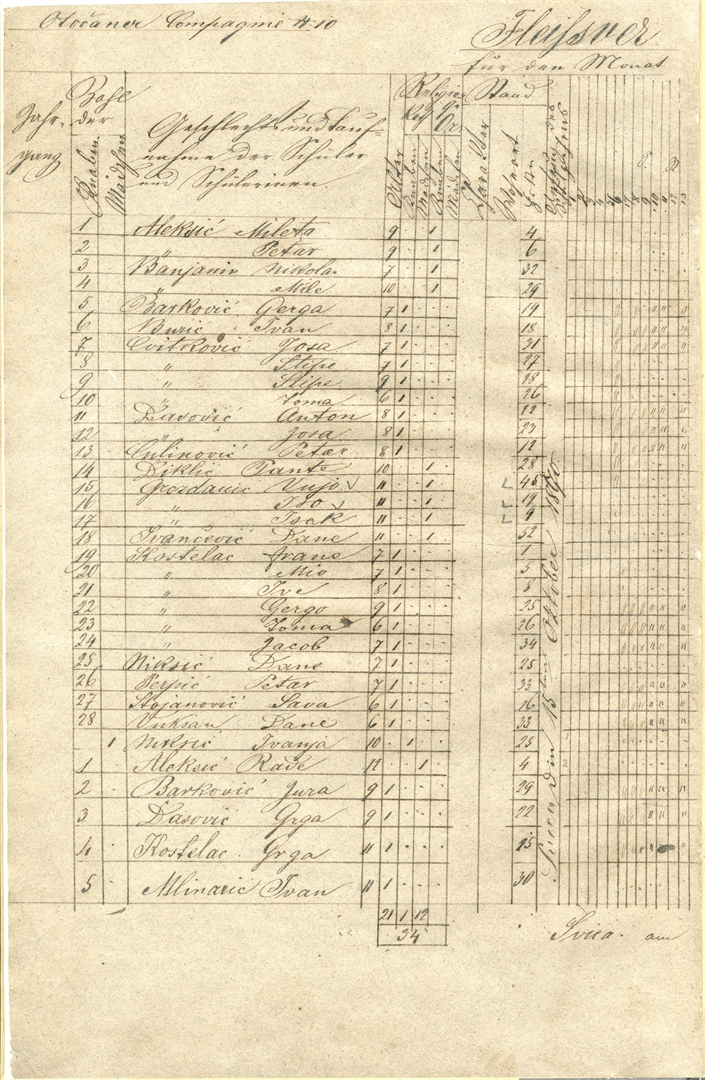 Otočaner Compagnie № 10
Fleißver
für den Monat
Jahrgang
Zahl der
Knaben
Mädchen
Geschlechts und Taufnahme der Schüler und Schülerinen.
Alter
Religion
Kath
Gr. Or.
Knaben
Mädchen
Knaben
Mädchen
Stand
Karakter
Wohnort
1 Aleksić Mileta 9 1 4
2 " Petar 9 1 6
3 Banjanin Nikola 7 1 32
4 " Mile 10 1 29
5 Barković Gerga 7 1 19
6 Burić Ivan 8 1 18
7 Cvitković Josa 7 1 31
8 " Stipe 7 1 27
9 " Stipe 9 1 28
10 " Toma 6 1 26
11 Dasović Anton 8 1 22
12 " Josa 8 1 23
13 Čulinović Petar 8 1 12
14 Diklić Pante 10 1 28
15 Grozdanić Vujo 11 1 45
16 " Ilo 11 1 19
17 " Isak 11 1 9
18 Ivančević Dane 11 1 52
19 Kostelac Ivane 7 1 1
20 " Mio 7 1 5
21 " Ive 8 1 8
22 " Gergo 9 1 25
23 " Toma 6 1 26
24 " Jacob 7 1 34
25 Nikšić Dane 7 1 25
26 Perpić Petar 7 1 33
27 Stojanović Sava 6 1 16
28 Vuksan Dane 6 1 33
1 Nikšić Ivanja 10 1 25
1 Aleksić Rade 12 1 4
2 Barković Jura 9 1 29
3 Dasović Grga 9 1 22
4 Kostelac Grga 11 1 25
5 Mlinarić Ivan 11 1 30
21 1 12
34
15ten Oktober 1870
Svica am